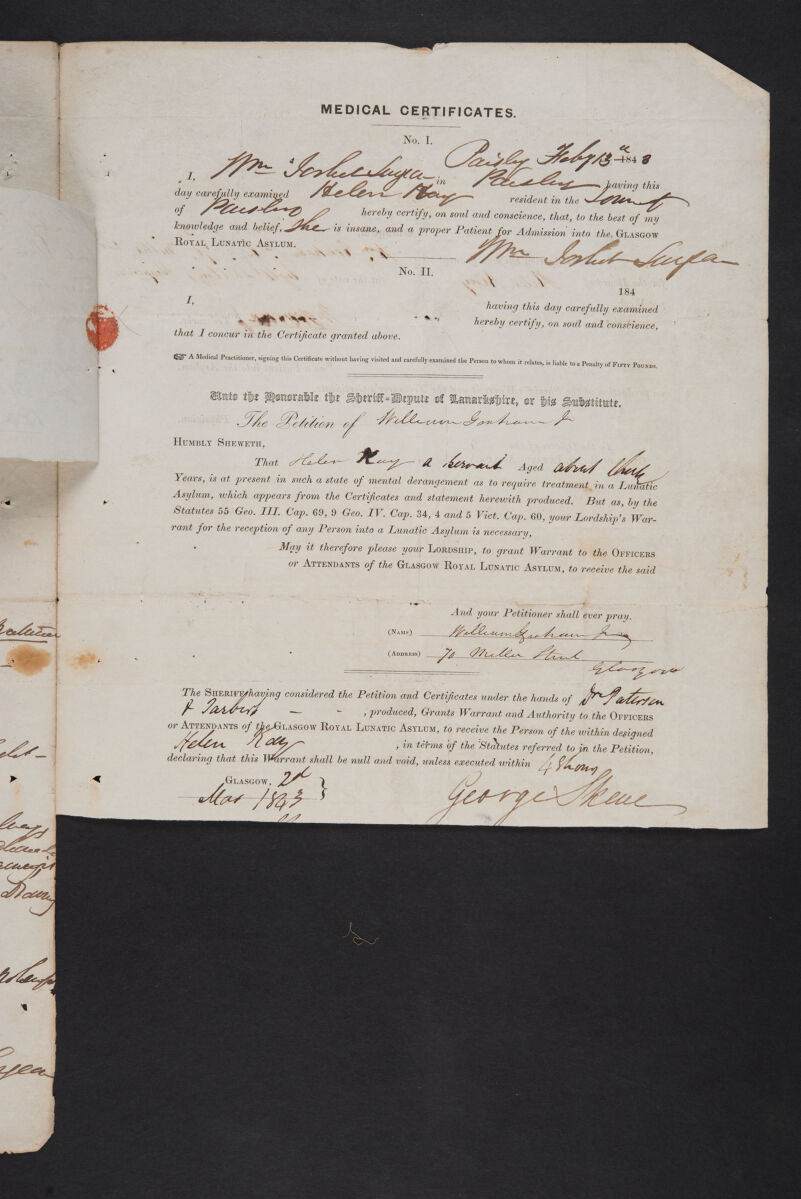 MEDICAL CERTIFICATES.
No. I.
Paisley Feby 13th 1843
I, Wm Torbet Surgeon in Paisley having this
day carefully examined Helen Kay resident in the Town
of Paisley hereby certify, on soul and conscience, that, to the best of my
knowledge and belief, She is insane, and a proper Patient for Admission into the GLASGOW
ROYAL LUNATIC ASYLUM.
Wm Torbet Surgeon
No. II.
184
I, having this day carefully examined
hereby certify, on soul and conscience,
that I concur in the Certificate granted above.
☞ A Medical Practitioner, signing this Certificate without having visited and carefully examined the Person to whom it relates, is liable to a Penalty of FIFTY POUNDS.
Unto the Honorable the Sheriff-Depute of Lanarkshire, or his Substitute.
The Petition of William Graham Jr
HUMBLY SHEWETH,
That Helen Kay a Servant Aged about
Years, is at present in such a state of mental derangement as to require treatment in a Lunatic
Asylum, which appears from the Certificates and statement herewith produced. But as, by the
Statutes 55 Geo. III. Cap. 69, 9 Geo. IV. Cap. 34, 4 and 5 Vict. Cap. 60, your Lordship's War-
rant for the reception of any Person into a Lunatic Asylum is necessary,
May it therefore please your LORDSHIP, to grant Warrant to the OFFICERS
or ATTENDANTS of the GLASGOW ROYAL LUNATIC ASYLUM, to receive the said
And your Petitioner shall ever pray.
(NAME) William Graham Jr
(ADDRESS) 70 Miller Street
Glasgow
The SHERIFF having considered the Petition and Certificates under the hands of Dr Paterson
& Tarbert , produced, Grants Warrant and Authority to the OFFICERS
or ATTENDANTS of the GLASGOW ROYAL LUNATIC ASYLUM, to receive the Person of the within designed
Helen Kay , in terms of the Statutes referred to in the Petition,
declaring that this Warrant shall be null and void, unless executed within 48 hours
GLASGOW, 2d
Mar 1843
George Skene